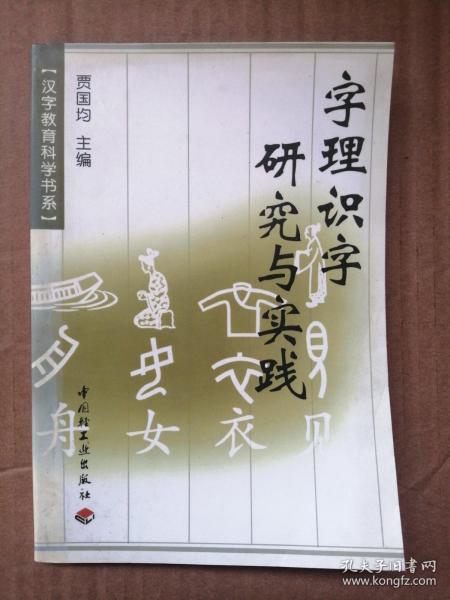 字理识字
研究与实践
贾国均 主编
【汉字教育科学书系】
舟 女 衣 见
中国轻工业出版社
孔夫子旧书网
www.kongfz.com